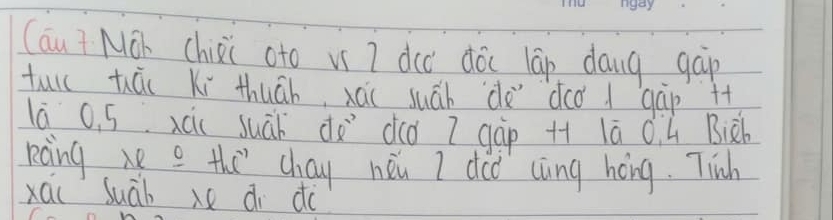 Thứ ngày
Câu 7. Một chiếc oto vs 2 đcơ độc lập đang gặp
trục trặc kĩ thuật, xác suất để đcơ 1 gặp tt
là 0,5. xác suất để đcơ 2 gặp tt là 0,4 Biết
Rằng xe o thể chạy nếu 2 đcơ cùng hỏng. Tính
xác suất xe đi đc